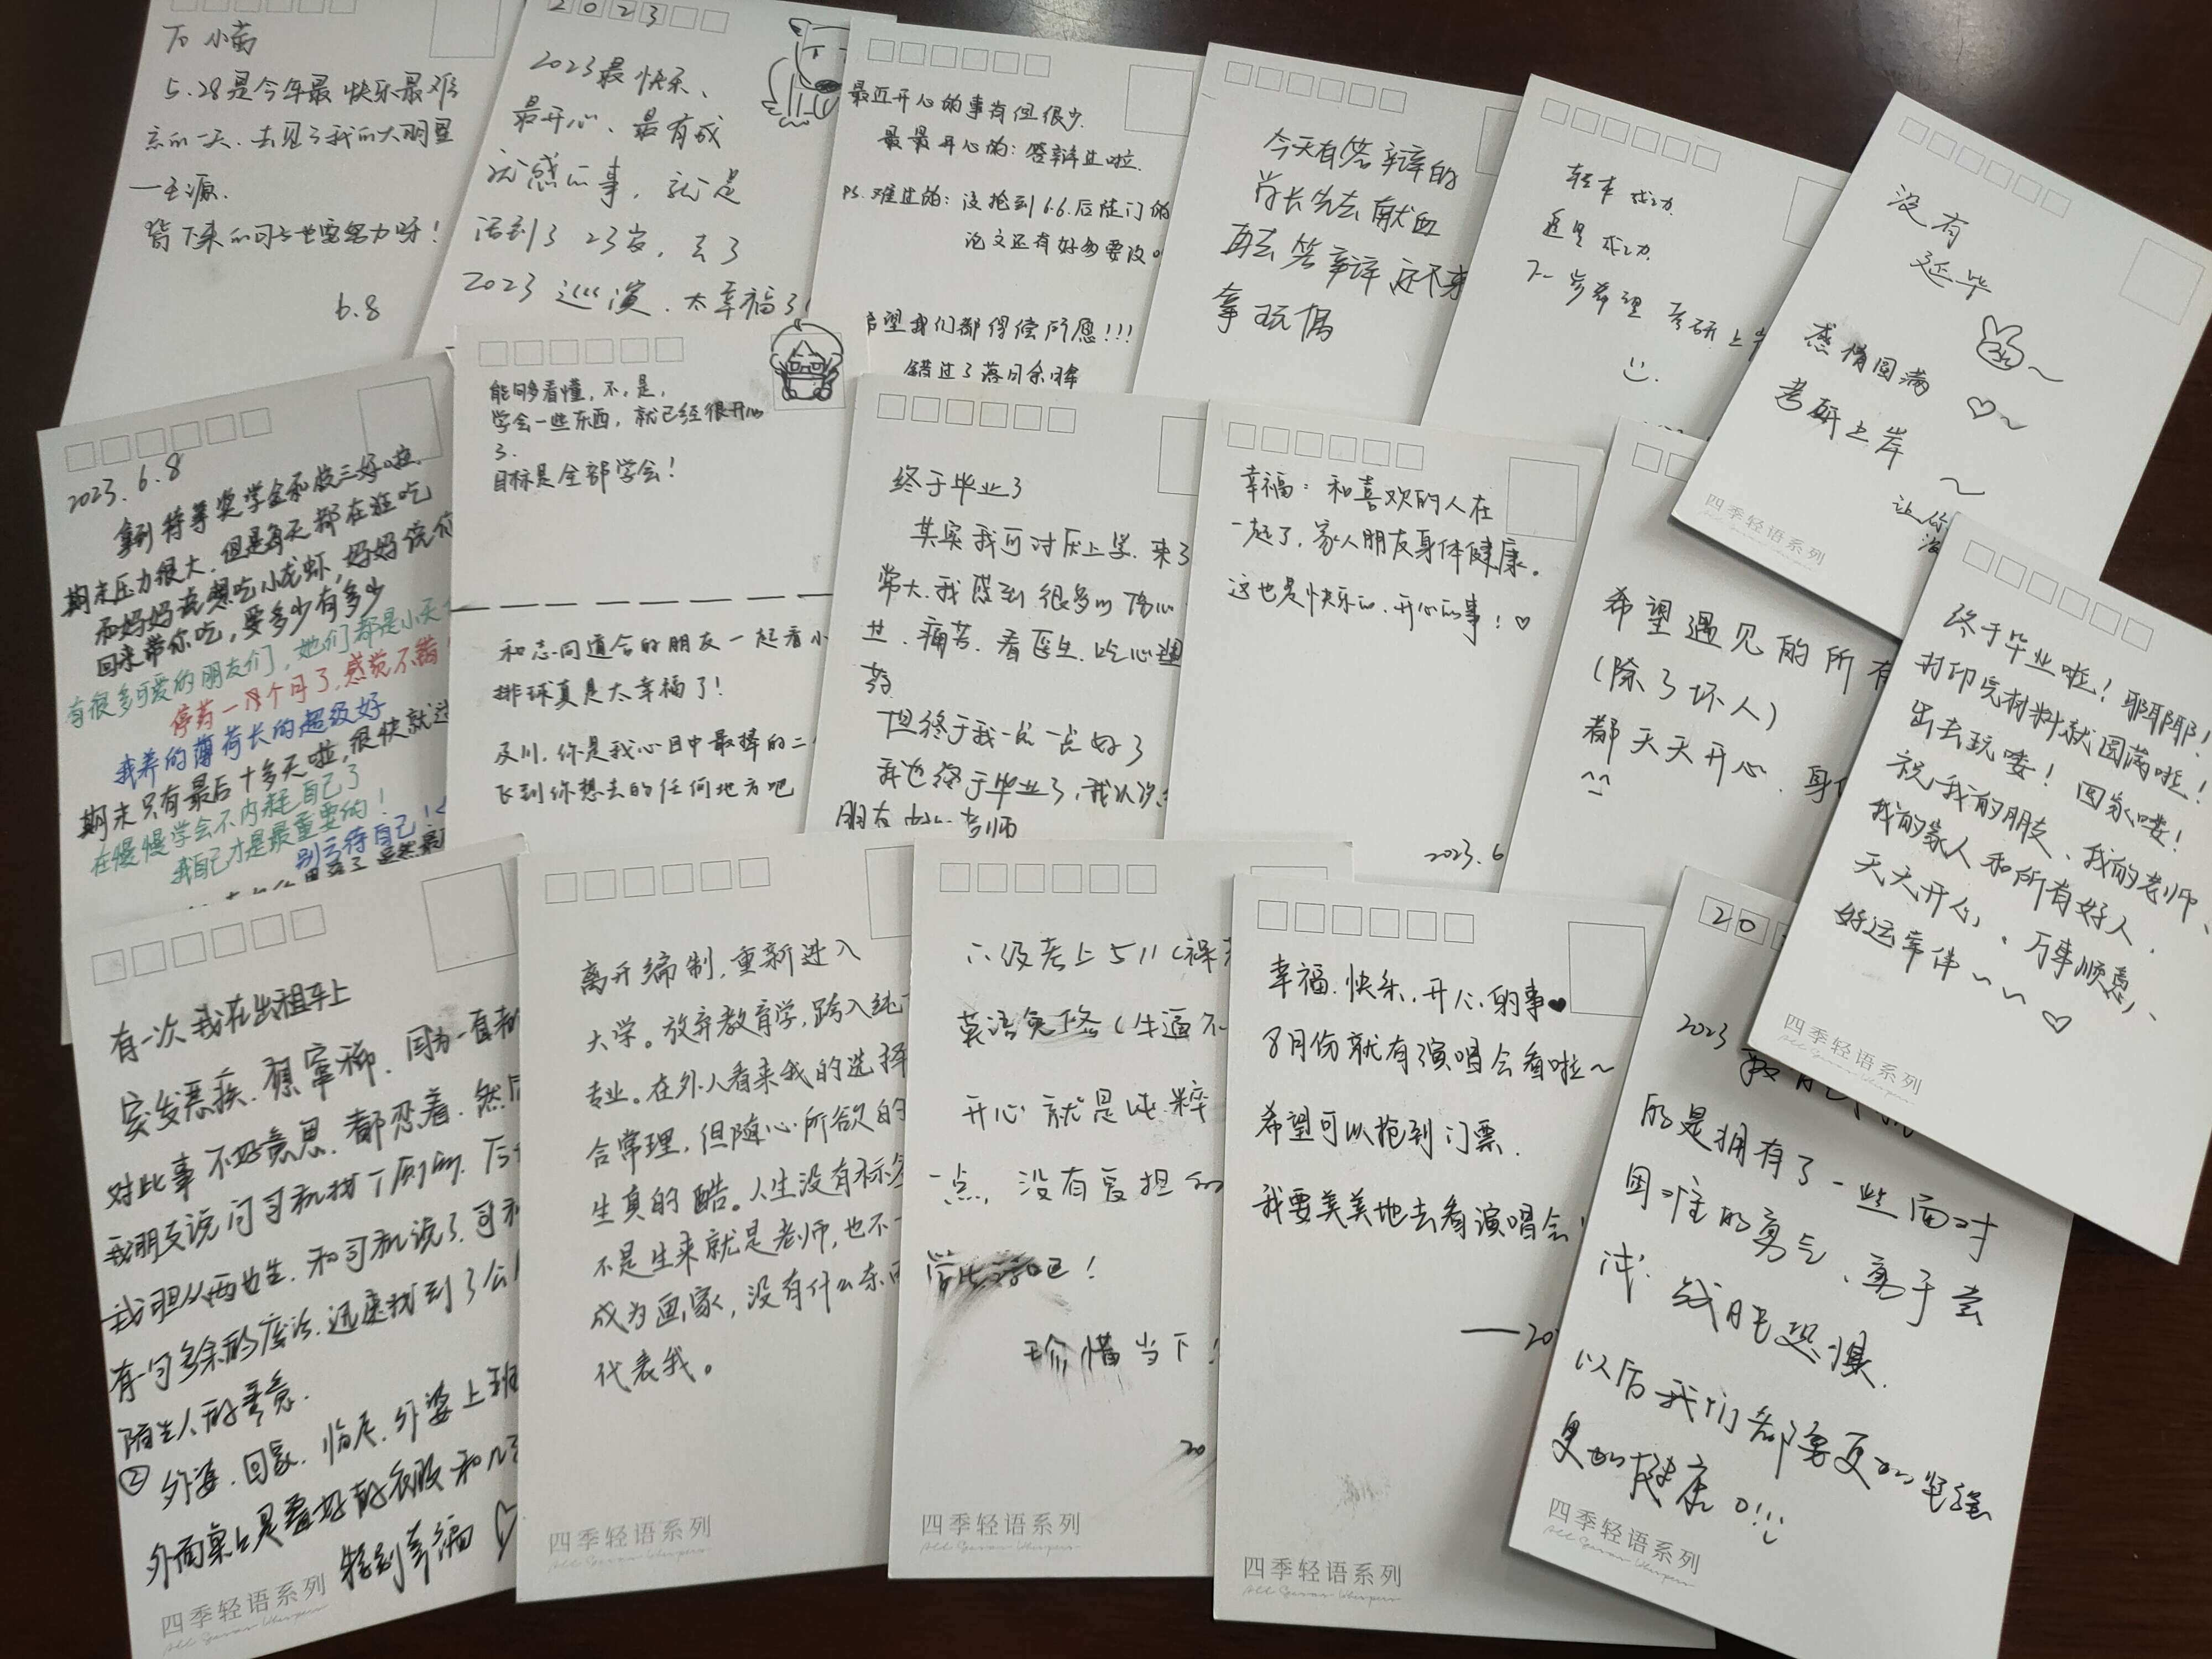 To 小萌
5.28是今年最快乐最难
忘的一天.去见了我的大明星
—王源.
接下来的司与也要努力呀!
6.8
2023
2023最快乐、
最开心、最有成
就感的事,就是
活到了23岁,去了
2023巡演.太幸福了!
最近开心的事有但很少.
最最开心的:答辩过啦.
PS.难过的:没抢到6.6.后陡门的
论文还有好多要改。
希望我们都得偿所愿!!!
错过了落日余晖
今天有答辩的
学长先去献血
再去答辩还不来
拿玩偶
轻车成功.
返星成功.
下一步希望考研上岸
没有
延毕
感情圆满
考研上岸
让你
四季轻语系列
2023.6.8
拿到特等奖学金和校三好啦.
期末压力很大.但是每天都在狂吃
和妈妈说想吃小龙虾,妈妈说你
回来带你吃,要多少有多少
有很多可爱的朋友们,她们都是小天
停药一个月了,感觉不错!
我养的薄荷长的超级好
期末只有最后十多天啦,很快就过
在慢慢学会不内耗自己了
我自己才是最重要的!
别亏待自己!
能够看懂,不,是,
学会一些东西,就已经很开心
了.
目标是全部学会!
和志同道合的朋友一起看小
排球真是太幸福了!
及川,你是我心目中最棒的二
飞到你想去的任何地方吧
终于毕业了
其实我可讨厌上学.来了
常大.我感到很多的恶心
过.痛苦.看医生.吃心理
药
但终于我一点一点好了
我也终于毕业了,我认识
朋友 老师
幸福:和喜欢的人在
一起了.家人朋友身体健康。
这也是快乐的.开心的事!♡
2023.6
希望遇见的所有
(除了坏人)
都天天开心.身
^^
终于毕业啦!耶耶耶!
打印完材料就圆满啦!
出去玩喽!回家喽!
祝我的朋友、我的老师、
我的家人和所有好人.
天天开心、万事顺意、
好运常伴~~~♡
四季轻语系列
All Season Whispers
有一次我在出租车上
突发恶疾.想窜稀.因为一直都
对此事不好意思.都忍着.然后
我朋友说问司机找个厕所.后
我胆从两边生.和司机说了.司机
有一句多余的废话.迅速找到了公
陌生人的善意.
②外婆.回家.临走.外婆上班
外面桌上是叠好的衣服和几
特别幸福♡
四季轻语系列
All Season Whispers
离开编制,重新进入
大学。放弃教育学,跨入纯
专业。在外人看来我的选择
合常理,但随心所欲的
生真的酷。人生没有标签
不是生来就是老师,也不
成为画家,没有什么东西
代表我。
四季轻语系列
All Season Whispers
六级考上511(裸考
英语免修(牛逼不
开心就是纯粹
一点,没有负担的
吧!
珍惜当下!
20
四季轻语系列
All Season Whispers
幸福.快乐.开心的事♥
8月份就有演唱会看啦~
希望可以抢到门票.
我要美美地去看演唱会!
—20
四季轻语系列
All Season Whispers
20
2023
的是拥有了一些面对
困难的勇气、勇于尝
试.战胜恐惧.
以后我们都要更加坚强
更加健康o!
四季轻语系列
All Season Whispers